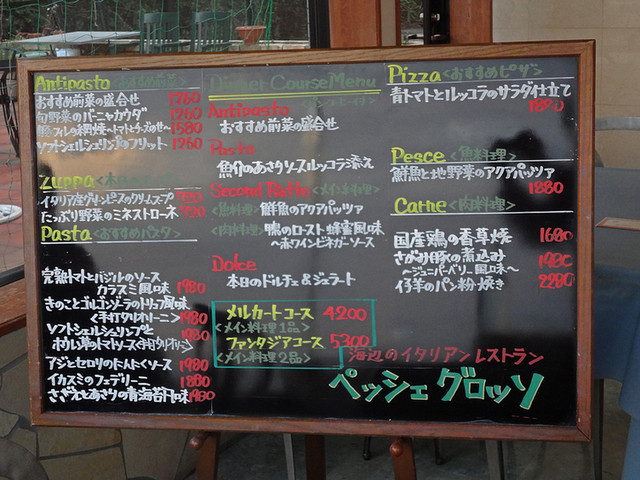 Antipasto <おすすめ前菜>
おすすめ前菜の盛合せ 1260
旬野菜のバーニャカウダ 1260
1580
ソフトシェルシュリンプのフリット 1260
Zuppa
イタリア産グリンピースのクリームスープ
たっぷり野菜のミネストローネ 720
Pasta <おすすめパスタ>
完熟トマトとバジルのソース
カラスミ風味 1980
きのことゴルゴンゾーラのトリュフ風味
<手打タリオリーニ> 1980
ソフトシェルシュリンプと 1980
トマトソース<手打タリオリーニ>
アジとセロリのたんたくソース 1980
イカスミのフェデリーニ 1880
さざえとあさりの青海苔風味 1980
Dinner Course Menu
Antipasto
おすすめ前菜の盛合せ
Pasta
魚介のあさりソースルッコラ添え
Second Piatto <メイン料理>
<魚料理> 鮮魚のアクアパッツァ
<肉料理> 鴨のロースト 蜂蜜風味
〜赤ワインビネガーソース
Dolce
本日のドルチェ&ジェラート
メルカートコース 4200
<メイン料理1品>
ファンタジアコース 5300
<メイン料理2品>
Pizza <おすすめピザ>
青トマトとルッコラのサラダ仕立て
1880
Pesce <魚料理>
鮮魚と地野菜のアクアパッツァ
1880
Carne <肉料理>
国産鶏の香草焼 1680
さがみ豚の煮込み 1980
〜ジュニパーベリー風味〜
仔羊のパン粉焼き 2280
海辺のイタリアンレストラン
ペッシェ グロッソ